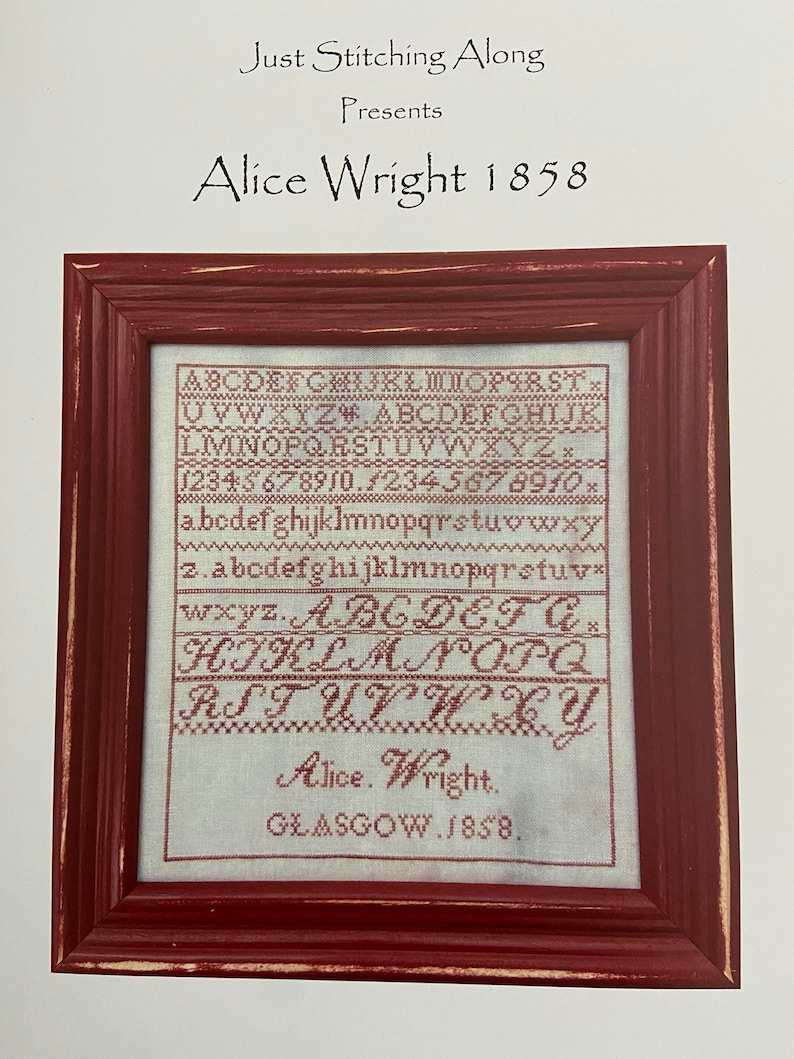 Just Stitching Along
Presents
Alice Wright 1858
ABCDEFGHIJKLMNOPQRST x
UVWXYZ ABCDEFGHIJK
LMNOPQRSTUVWXYZ x
12345678910.12345678910 x
abcdefghijklmnopqrstuvwxy
z.abcdefghijklmnopqrstuv x
wxyz. ABCDEFG x
HIKLMNOPQ
RSTUVWXY
Alice. Wright.
GLASGOW.1858.